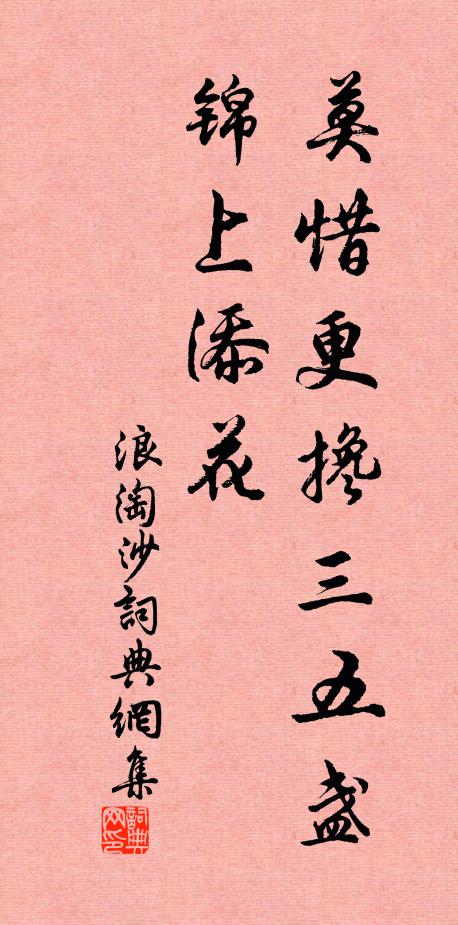 莫惜更搀三五盏
锦上添花
浪淘沙詞典網集
詞典网印